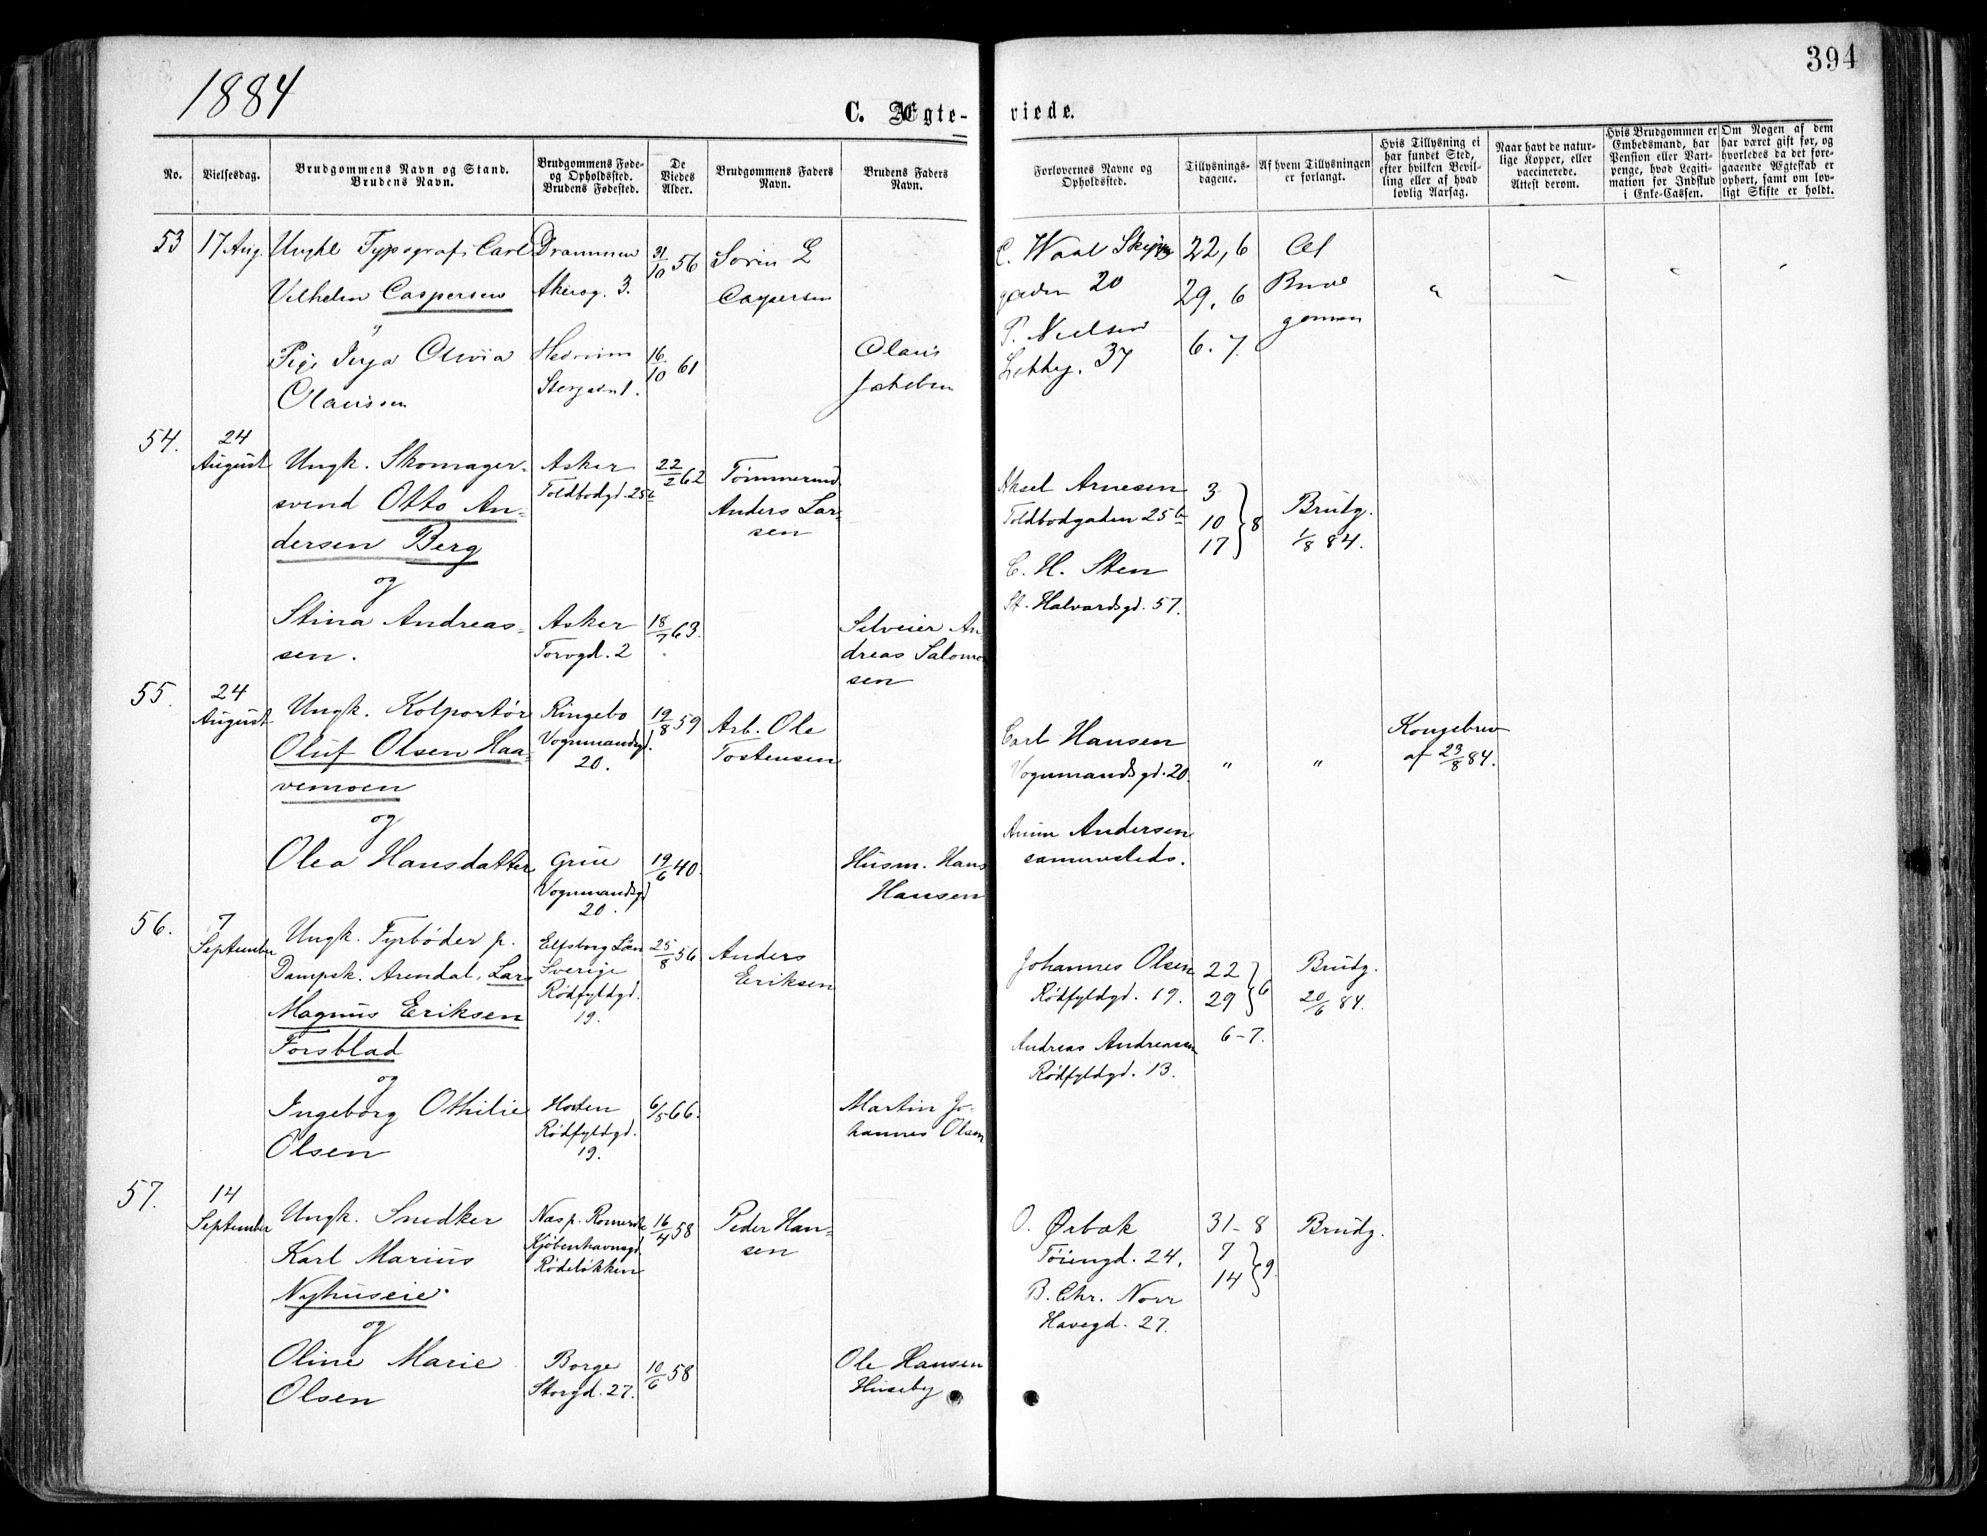 1884
394
C. Ægte-
viede.
No.
Vielsesdag.
Brudgommens Navn og Stand.
Brudens Navn.
Brudgommens Føde-
og Opholdssted.
Brudens Fødested.
De
Viedes
Alder.
Brudgommens Faders
Navn.
Brudens Faders
Navn.
Forlovernes Navne og
Opholdssted.
Tillysnings-
dagene.
Af hvem Tillysningen
er forlangt.
Hvis Tillysning ei
har fundet Sted,
efter hvilken Bevil-
ling eller af hvad
lovlig Aarsag.
Naar havt de natur-
lige Kopper, eller
vaccinerede.
Attest derom.
Hvis Brudgommen er
Embedsmand, har
Pension eller Vart-
penge, hvad Legiti-
mation for Indskud
i Enke-Cassen.
Om Nogen af dem
har været gift før, og
hvorledes da det fore-
gaaende Ægteskab er
ophørt, samt om lov-
ligt Skifte er holdt.
53
17 Aug.
Ungkl Typograf Carl
Vilhelm Caspersen
Pige Inga Olivia
Olaussen
Drammen
Akersg. 3.
31/10 56
16/10 61
Sørin L
Caspersen
Olaus
Jakobsen
C. Waal
gaden 20
P. Nielsen
37
22, 6
29, 6
6. 7.
Af
Brud
gommen
"
54.
24
August
Ungk. Skomager-
svend Otto An-
dersen Berg
og
Stina Andreas-
sen.
Asker
Toldbodgd. 25b
Asker
Torvgd. 2
22/2 62
18/7 63.
Tømmermd
Anders Lar-
sen
Silveier An-
dreas Salomon
sen
Aksel Arnesen
Toldbodgaden 25b
C. H. Sten
St. Halvardsgd. 57.
3
10
17
8
Brudg.
1/8 84.
55.
24
August
Ungk. Kolportør
Oluf Olsen Haa-
vemoen
og
Olea Hansdatter
Ringebo
Vognmandsgd.
20.
Grue
Vognmandsgd
20.
19/8 59
19/6 40.
Arb. Ole
Tostensen
Husm. Hans
Hansen
Carl Hansen
Vognmandsgd. 20.
Andersen
sammesteds.
"
"
Kongebrev
af 23/8 84.
56.
7
September
Ungk. Fyrbøder p.
Dampsk. Arendal, Lars
Magnus Eriksen
Forsblad
og
Ingeborg Othilie
Olsen
Elfsborg Län
Sverige
Rødfyldgd.
19.
Horten
Rødfyldgd.
19.
25/8 56
6/5 66.
Anders
Eriksen
Martin Jo-
hannes Olsen
Johannes Olsen
Rødfyldgd. 19.
Andreas Andreasen
Rødfyldgd. 13.
22
29
6
6-7.
Brudg.
20/6 84.
57.
14
September
Ungk. Snedker
Karl Marius
Nyhuseie.
og
Oline Marie
Olsen
Næs p. Romerike
Kjøbenhavnsgd.
Rodeløkken
Borge
Storgd. 27.
16/4 58
10/6 58
Peder Han-
sen
Ole Hansen
Huseby
O. Ørbæk
Tøiengd. 24.
B. Chr. Norr
Havegd. 27.
31-8
7
14
9.
Brudg.